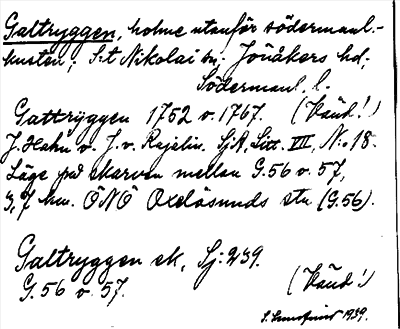 Galtryggen, holme utanför södermanl.-
kusten; S:t Nikolai sn; Jönåkers hd,
Södermanl. l.
Gattryggen 1752 o. 1767. (Känd!)
J. Hahn o. J. v. Rajalin. SjR, Litt. VII, N:o 18.
Läge på skarven mellan G.56 o. 57,
3,7 km. ÖNÖ Oxelösunds stn (G.56).
Galtryggen ek, Sj:239.
G.56 o. 57. (Känd!)
1939.